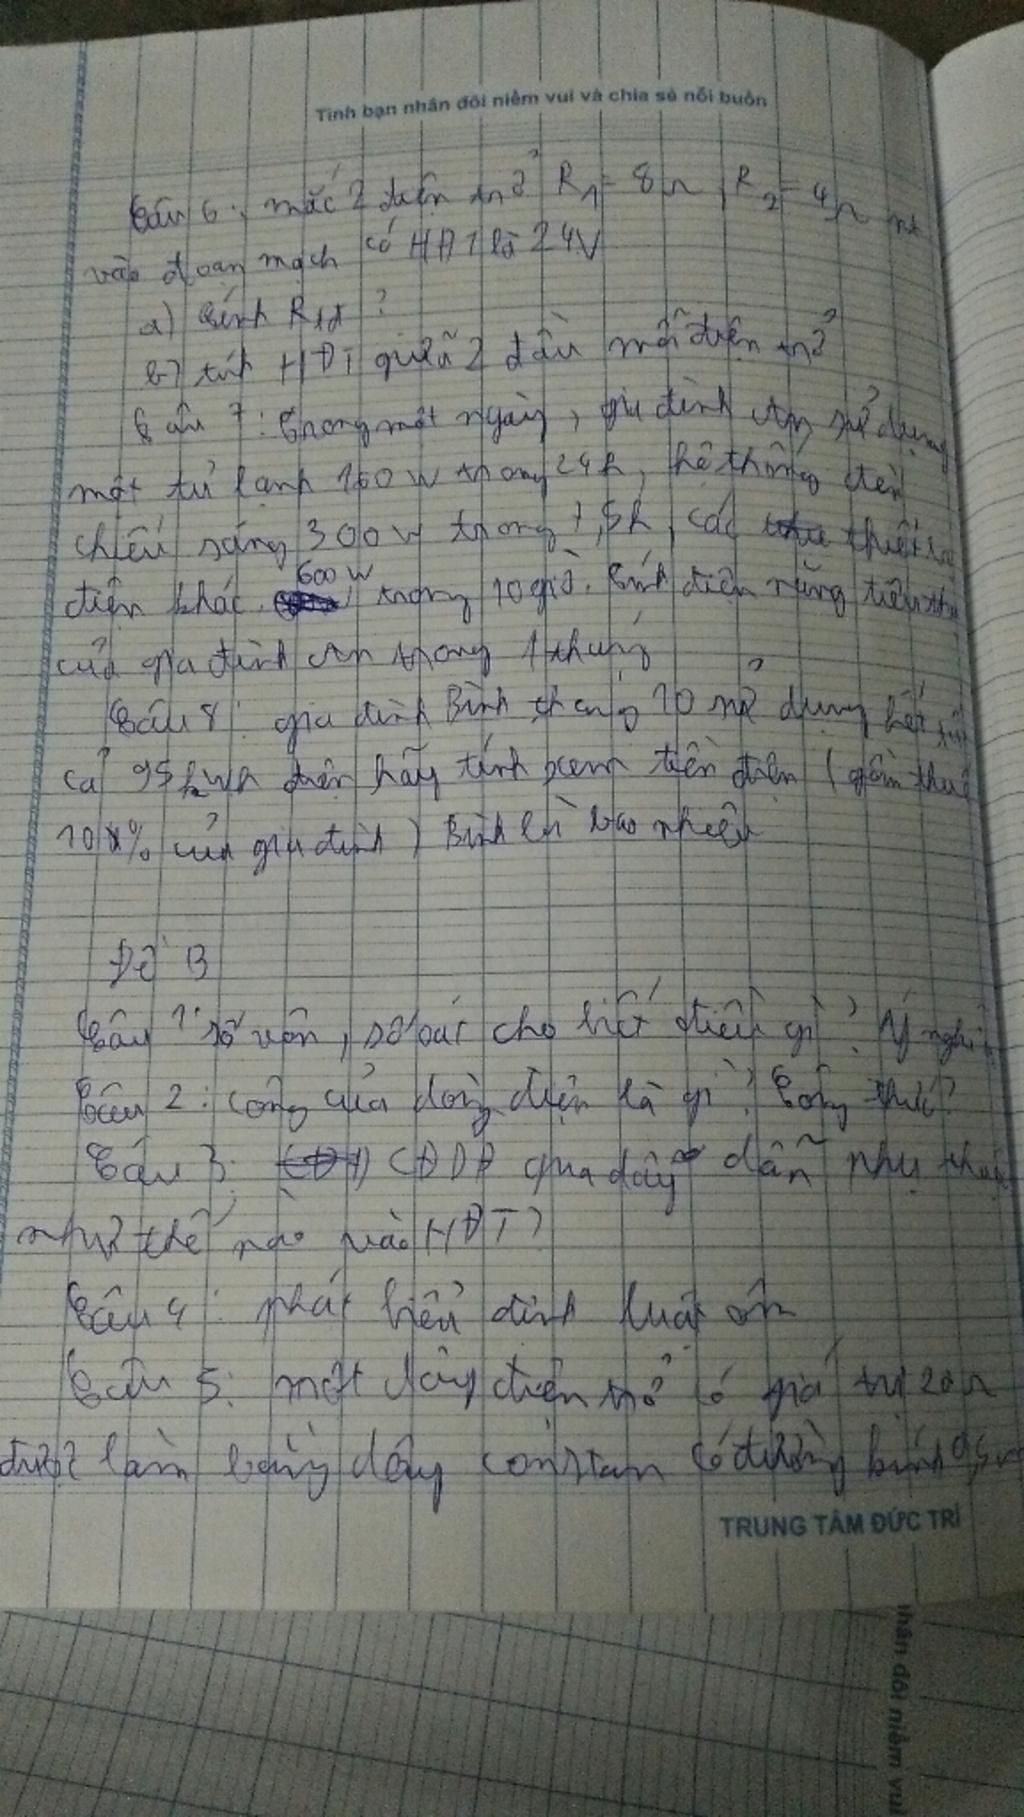 Tình bạn nhân đôi niềm vui và chia sẻ nỗi buồn
Câu 6: mắc 2 điện trở R1 = 8Ω, R2 = 4Ω nt
vào đoạn mạch có HĐT là 24V
a) tính Rtđ?
b) tính HĐT giữa 2 đầu mỗi điện trở
Câu 7: trong một ngày, gia đình An sử dụng
một tủ lạnh 160W trong 24h, hệ thống đèn
chiếu sáng 300W trong 7,5h, các thiết bị
600W
điện khác trong 10 giờ. tính điện năng tiêu thụ
của gia đình An trong 1 tháng
Câu 8: gia đình Bình tháng 10 sử dụng hết
cả 95kWh điện hãy tính xem tiền điện (gồm thuế
10% của gia đình) Bình là bao nhiêu
Đề B
Câu 1: số vôn, số oát cho biết điều gì? Ý nghĩa
Câu 2: công của dòng điện là gì? Công thức?
Câu 3: CĐDĐ qua dây dẫn phụ thuộc
như thế nào vào HĐT?
Câu 4: phát biểu định luật ôm
Câu 5: một dây điện trở có giá trị 20Ω
được làm bằng dây constan có đường kính 0,5
TRUNG TÂM ĐỨC TRÍ
nhân đôi niềm vui